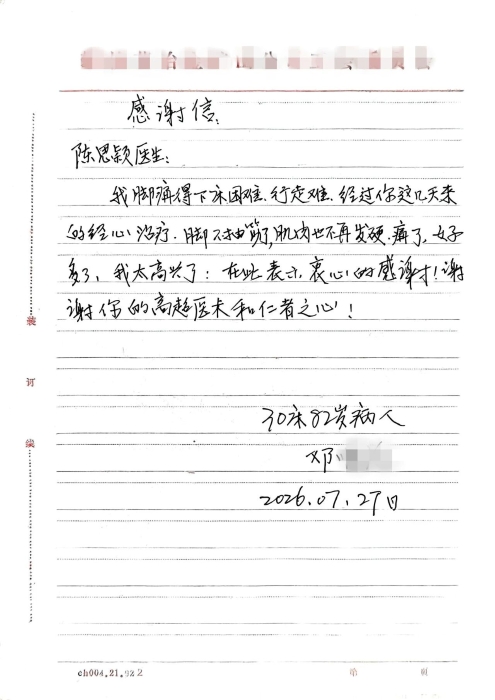 感谢信:
陈思颖医生:
我脚痛得下床困难、行走难、经过你这几天来
的经心治疗.脚不抽筋了,肌肉也不再发硬.痛了,好
多了,我太高兴了:在此表示衷心的感谢!谢
谢你的高超医术和仁者之心!
装
订
线
30床82岁病人
邓
2026.07.27日
ch004.21.922
第 页